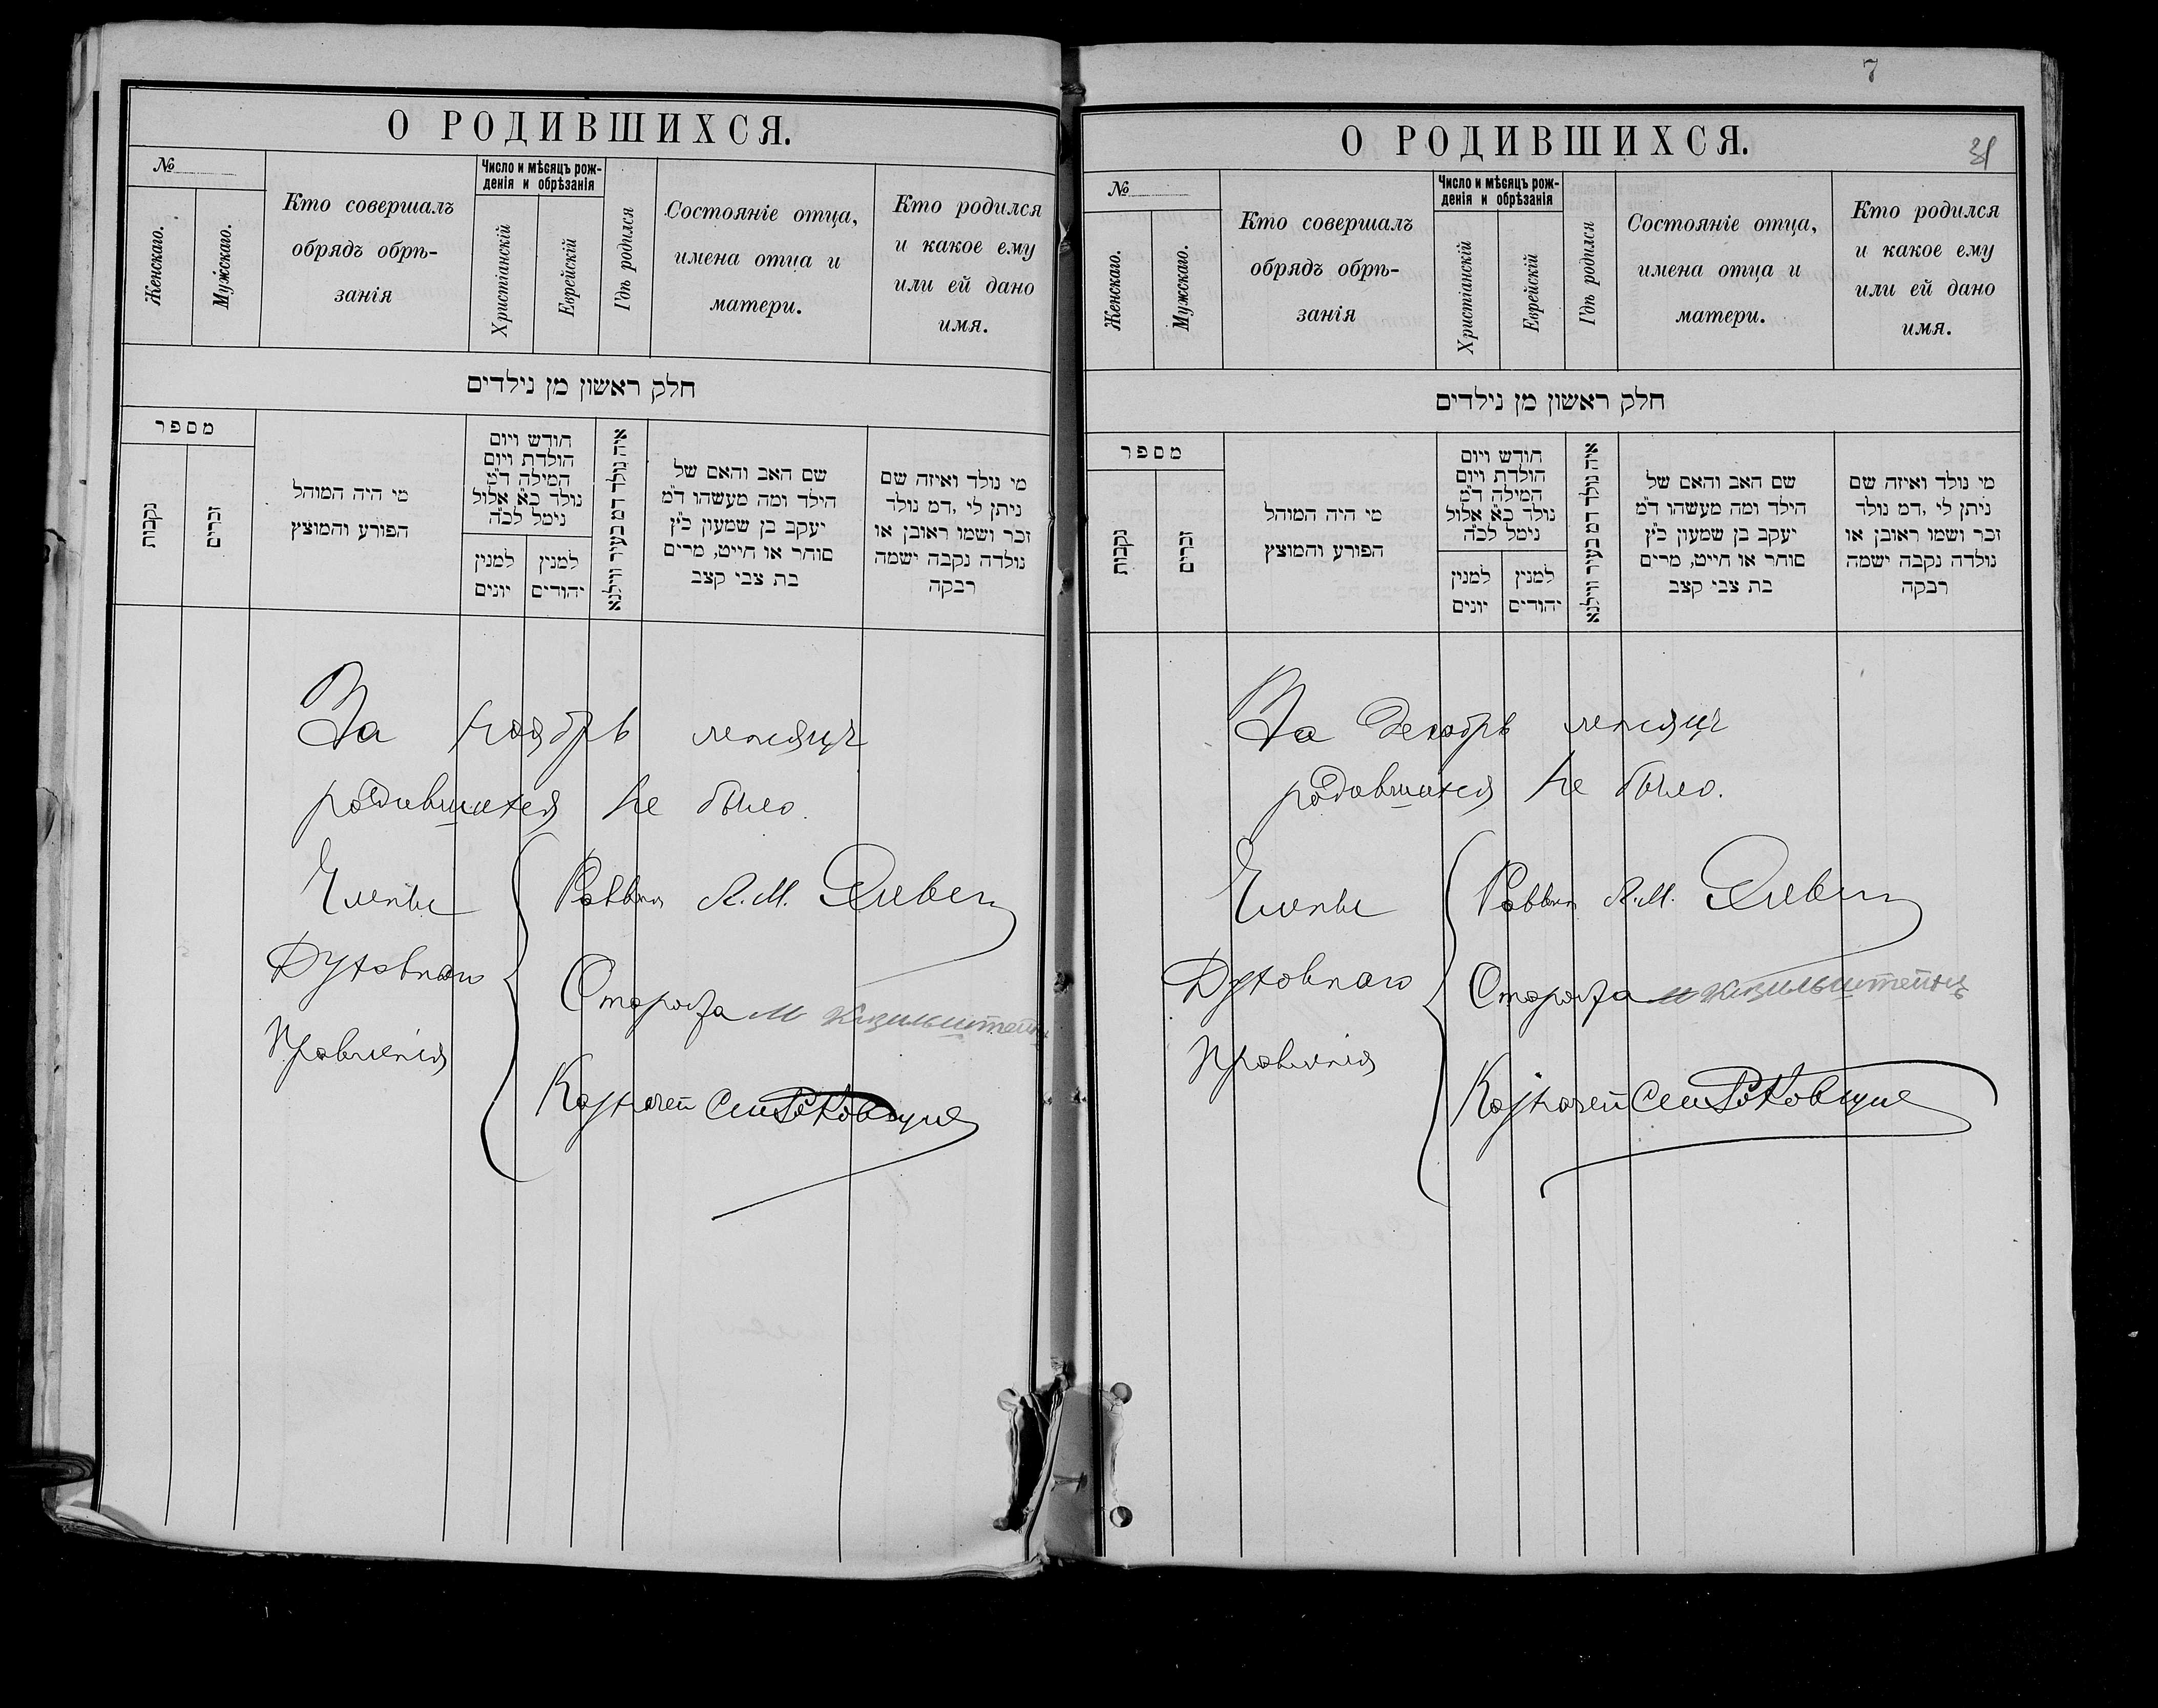 О РОДИВШИХСЯ.
№
Женскаго.
Мужскаго.
Кто совершалъ
обрядъ обрѣ-
занія
Число и мѣсяцъ рож-
денія и обрѣзанія
Христіанскій
Еврейскій
Гдѣ родился
Состояніе отца,
имена отца и
матери.
Кто родился
и какое ему
или ей дано
имя.
חלק ראשון מן נילדים
מספר
נקבות
זכרים
מי היה המוהל
הפורע והמוצץ
חודש ויום
הולדת ויום
המילה ד״מ
נולד כ״א אלול
נימל לכ״ה
למנין
יונים
למנין
יהודים
איה נולד דמ בעיר ווילנא
שם האב והאם של
הילד ומה מעשהו ד״מ
יעקב בן שמעון כ״ץ
סוחר או חייט, מרים
בת צבי קצב
מי נולד ואיזה שם
ניתן לי ,דמ נולד
זכר ושמו ראובן או
נולדה נקבה ישמה
רבקה
За ноябрь месяцъ
родившихся не было.
Члены
Духовнаго
Правленія
Раввин А.М.
Староста М Кизильштейнъ
Казначей
7
31
О РОДИВШИХСЯ.
№
Женскаго.
Мужскаго.
Кто совершалъ
обрядъ обрѣ-
занія
Число и мѣсяцъ рож-
денія и обрѣзанія
Христіанскій
Еврейскій
Гдѣ родился
Состояніе отца,
имена отца и
матери.
Кто родился
и какое ему
или ей дано
имя.
חלק ראשון מן נילדים
מספר
נקבות
זכרים
מי היה המוהל
הפורע והמוצץ
חודש ויום
הולדת ויום
המילה ד״מ
נולד כ״א אלול
נימל לכ״ה
למנין
יונים
למנין
יהודים
איה נולד דמ בעיר ווילנא
שם האב והאם של
הילד ומה מעשהו ד״מ
יעקב בן שמעון כ״ץ
סוחר או חייט, מרים
בת צבי קצב
מי נולד ואיזה שם
ניתן לי ,דמ נולד
זכר ושמו ראובן או
נולדה נקבה ישמה
רבקה
За декабрь месяцъ
родившихся не было.
Члены
Духовнаго
Правленія
Раввин А.М.
Староста М Кизильштейнъ
Казначей